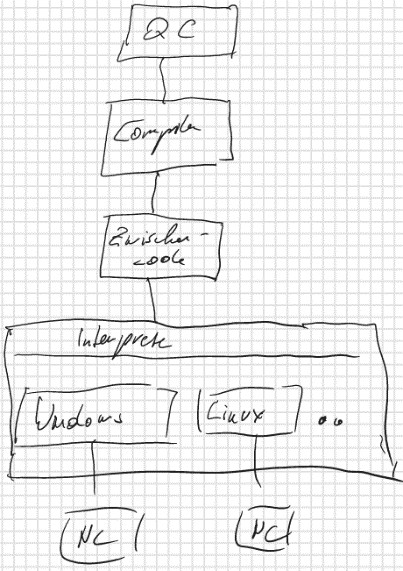 QC
Compiler
Zwischen-
code
Interpreter
Windows
Linux ..
MC
MC